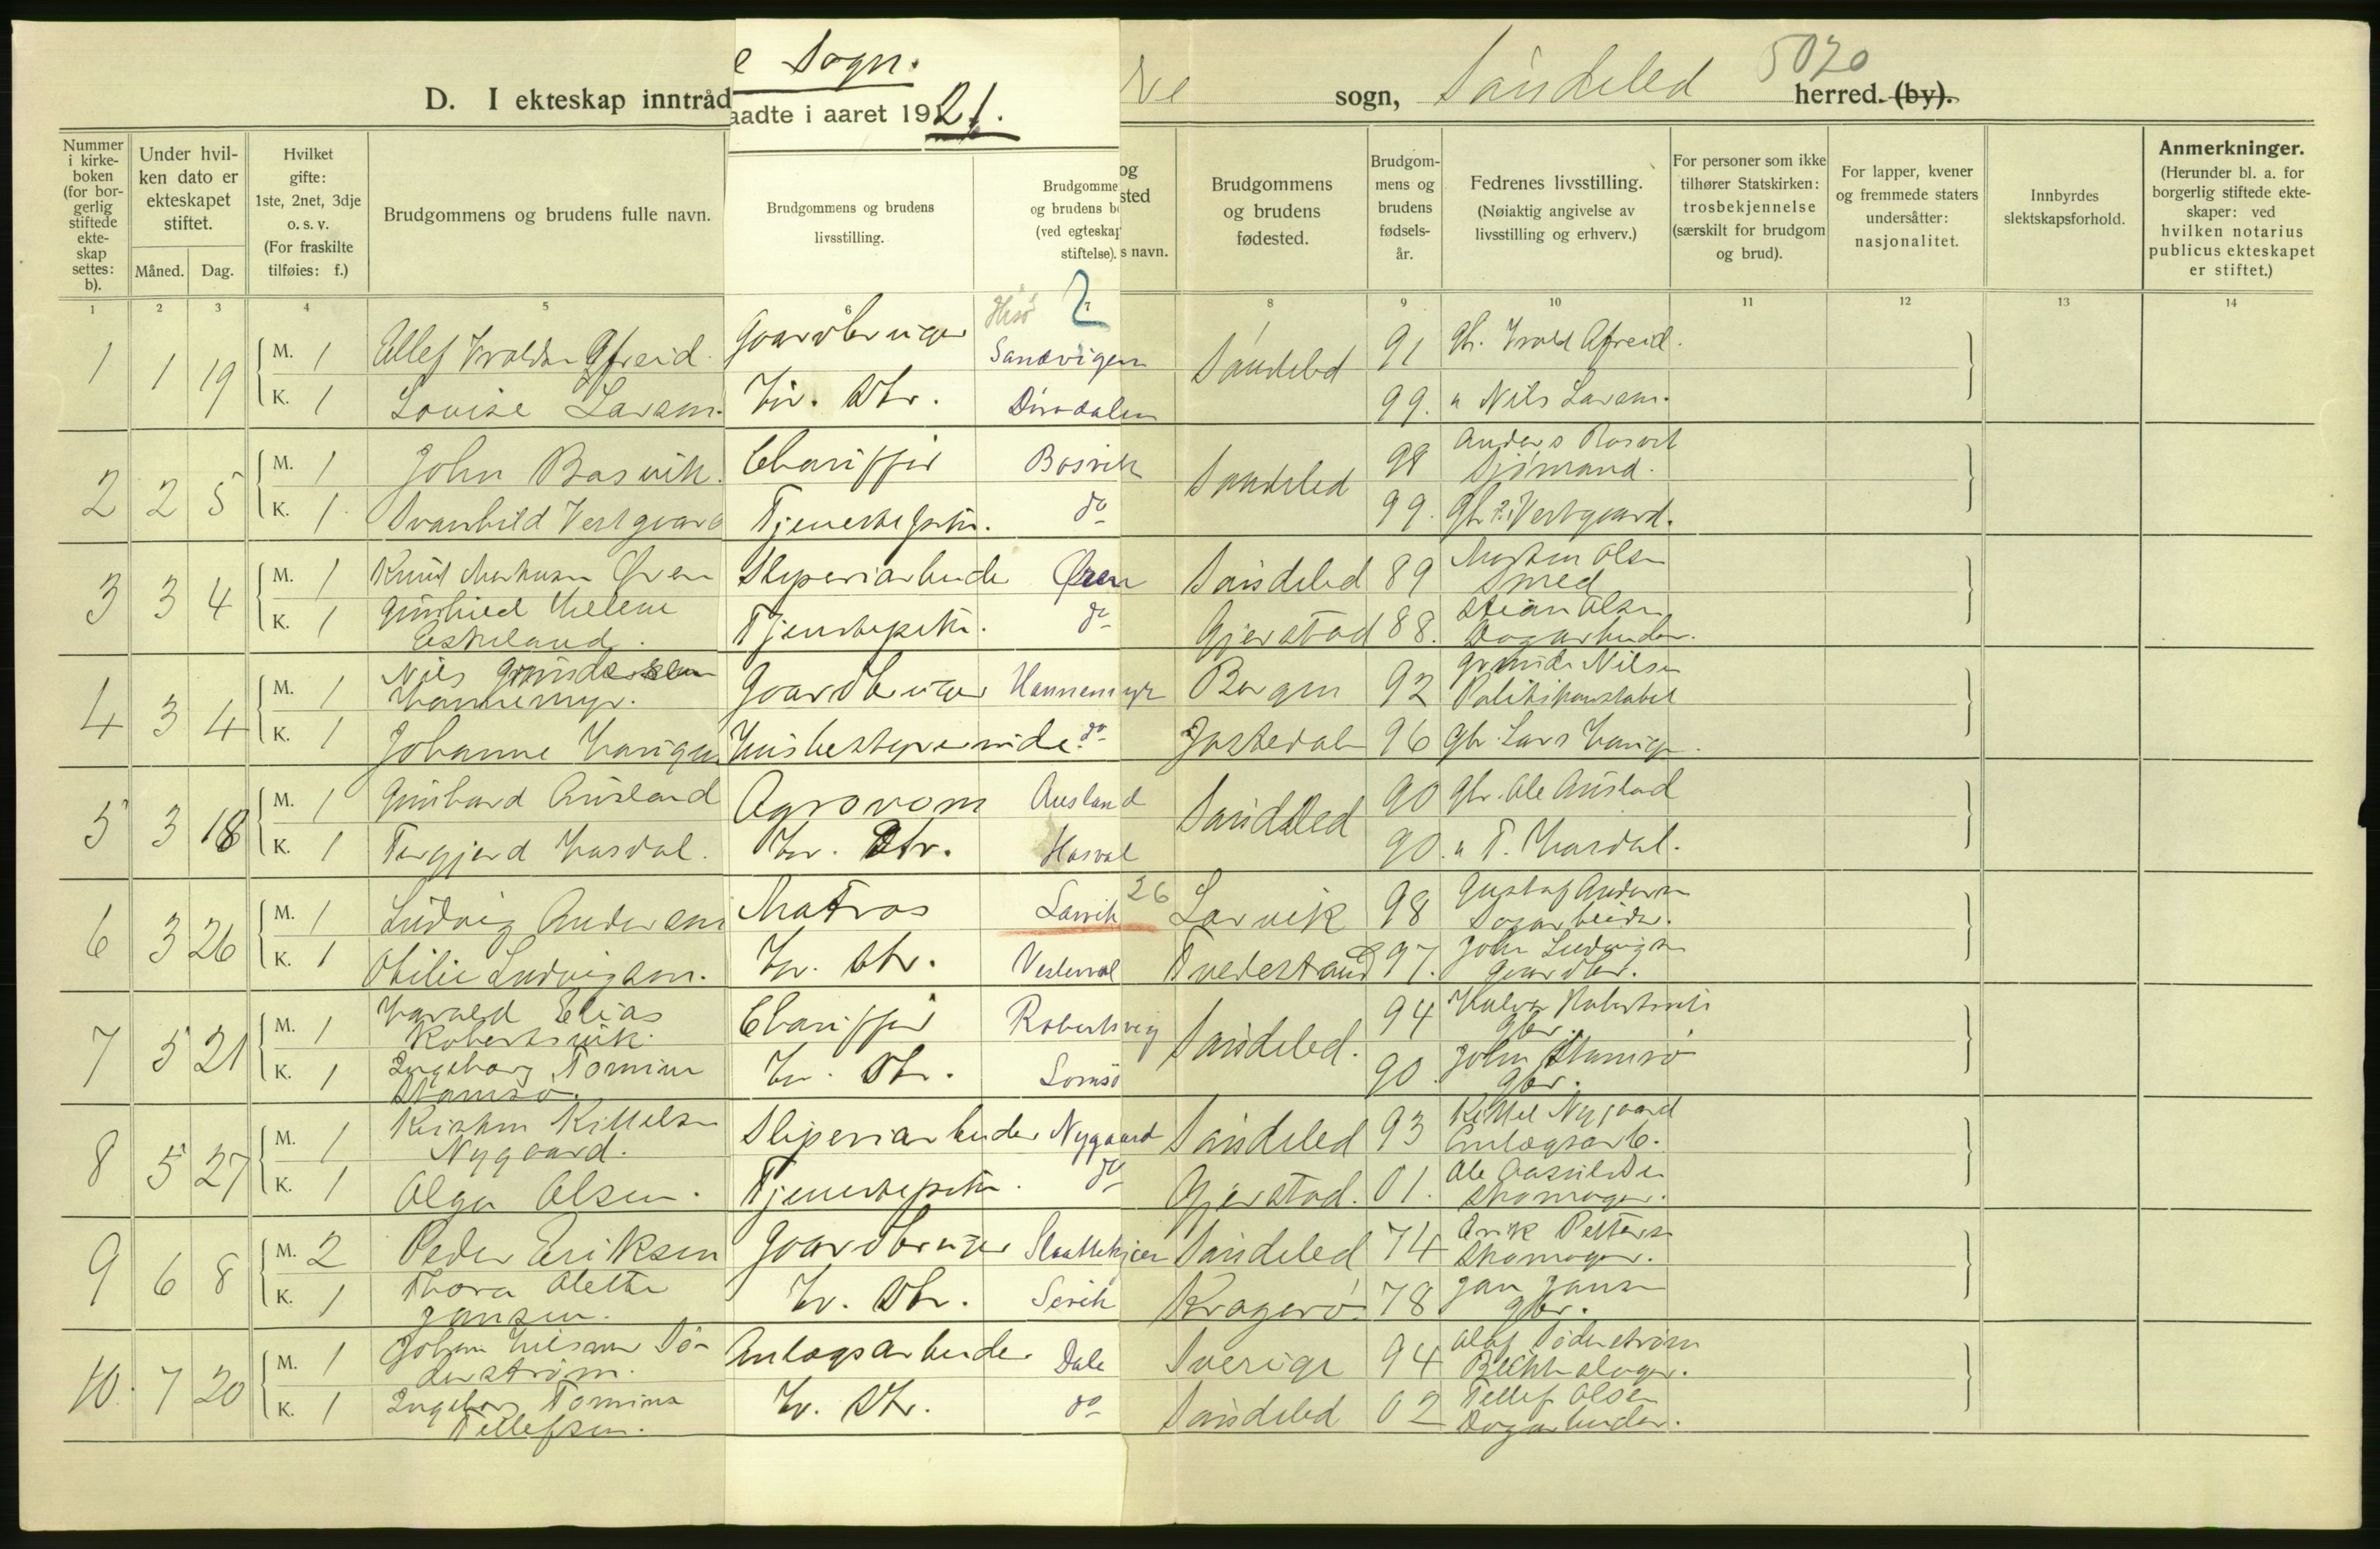 e Sogn.
5020
D. I ekteskap inntråd
aadte i aaret 1921.
sogn, Søndeled herred. (by).
Nummer i kirkeboken (for borgerlig stiftede ekteskap settes: b).
Under hvilken dato er ekteskapet stiftet.
Måned. Dag.
Hvilket gifte: 1ste, 2net, 3dje o. s. v. (For fraskilte tilføies: f.)
Brudgommens og brudens fulle navn.
Brudgommens og brudens livsstilling.
Brudgomme
og brudens bo
(ved egteskap
stiftelse).
og
sted
s navn.
Brudgommens og brudens fødested.
Brudgommens og brudens fødselsår.
Fedrenes livsstilling. (Nøiaktig angivelse av livsstilling og erhverv.)
For personer som ikke tilhører Statskirken: trosbekjennelse (særskilt for brudgom og brud).
For lapper, kvener og fremmede staters undersåtter: nasjonalitet.
Innbyrdes slektskapsforhold.
Anmerkninger. (Herunder bl. a. for borgerlig stiftede ekteskaper: ved hvilken notarius publicus ekteskapet er stiftet.)
1 2 3 4 5 6 7 8 9 10 11 12 13 14
Hisø 2
1 1 19 M. 1 Gaardbruger Sandvigen Søndeled 91
K. 1 Louise Larsen. Hv. Dtr. Dirdalen 99. " Nils Larsen.
2 2 5 M. 1 John Bosvik. Chauffør Bosvik Søndeled 98 Anders Bosvik
Sjømand.
K. 1 Svanhild Vestgaard Tjenestepike. do 99. Gbr. Vestgaard.
3 3 4 M. 1 Knut Mortensen Øren Sliperiarbeider Øren Søndeled 89 Morten Olsen
Smed
K. 1 Gunhild Helene
Eskeland. Tjenestepike. do Gjerstad 88. Stian Olsen
Dagarbeider.
4 3 4 M. 1 Nils Gundersen
Hannemyr. Gaardbruger Hannemyr Bergen 92 Nilsen
Politikonstabel
K. 1 Johanne Haugen Husbestyrerinde. do Jostedal 96 Gbr. Lars Haugen.
5 3 18 M. 1 Gunvard Ausland Agronom Ausland Søndeled 90 Gbr. Ole Ausland
K. 1 Torgjerd Hasdal. Hv. Dtr. Hasdal 90. " T. Hasdal.
6 3 26 M. 1 Ludvig Andersen Matros Larvik 26 Larvik 98 Gustaf Andersen
Dagarbeider.
K. 1 Otilie Ludvigsen. Hv. Dtr. Vesterdal Tvedestrand 97. John Ludvigsen
Gaardbr.
7 5 21 M. 1 Harald Elias
Robertsvik. Chauffør Robertsvig Søndeled. 94 Halvor Robertsvik
Gbr.
K. 1 Ingeborg Tomine
Stamsø. Hv. Dtr. 90 John Stamsø
Gbr.
8 5 27 M. 1 Kristen Kittelsen
Nygaard. Sliperiarbeider Nygaard Søndeled 93 Kittel Nygaard
Anlægsarb.
K. 1 Olga Olsen. Tjenestepike. do Gjerstad. 01. Ole
Skomager.
9 6 8 M. 2 Peder Eriksen Gaardbruger Slaattekjær Søndeled 74 Erik Petters
Skomager.
K. 1 Thora Olette
Jansen. Hv. Dtr. Sivik Kragerø 78 Jan Jansen
Gbr.
10. 7 20 M. 1 Johan Sö-
derström. Anlægsarbeider Dale Sverige 94 Olof Söderström
Blikkslager.
K. 1 Ingeborg Tomina
Tellefsen. Hv. Dtr. do Søndeled 02 Tellef Olsen
Dagarbeider.